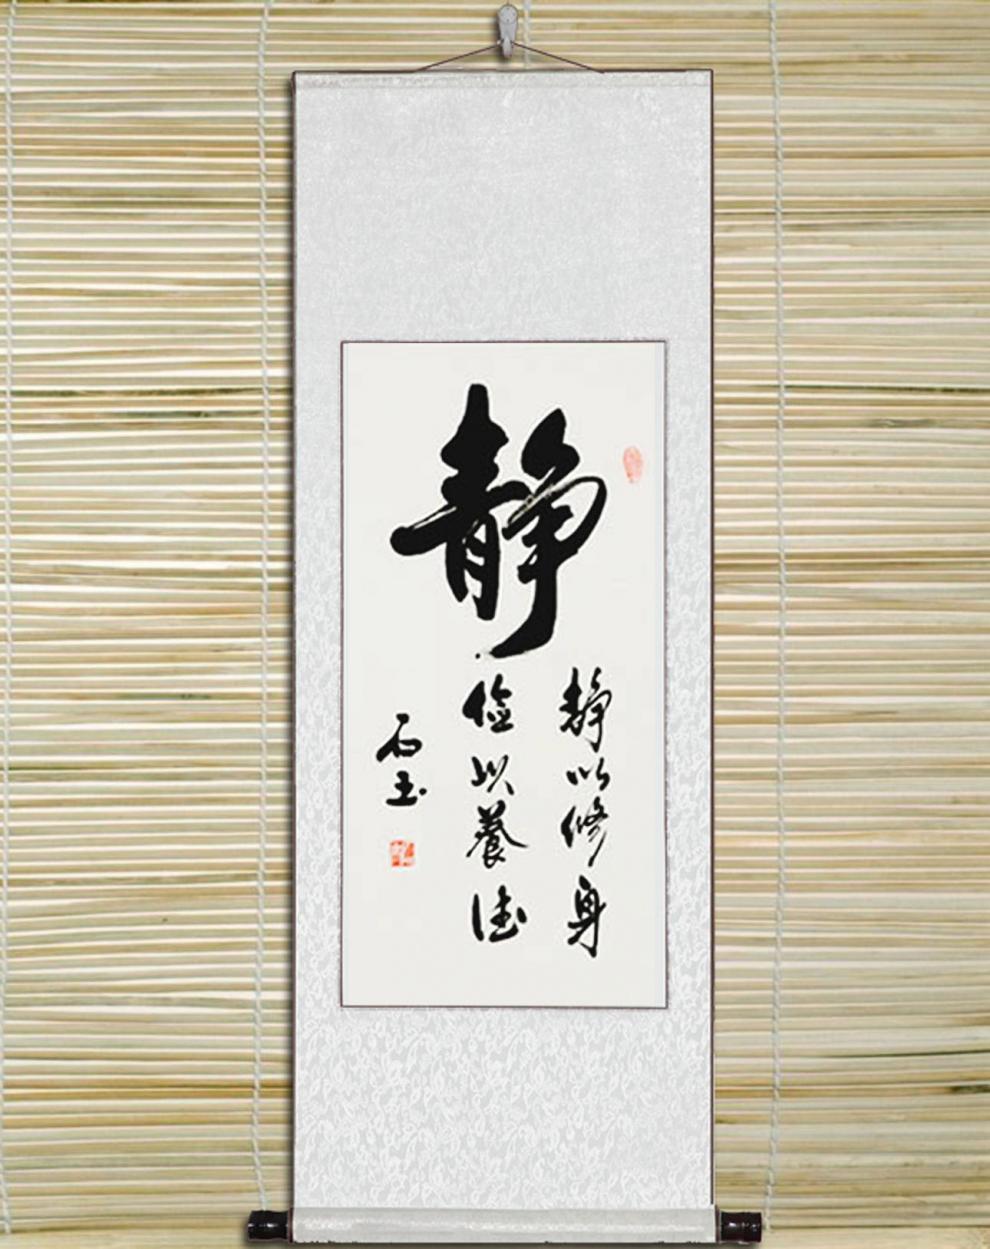 静
静以修身
俭以養德
石玉